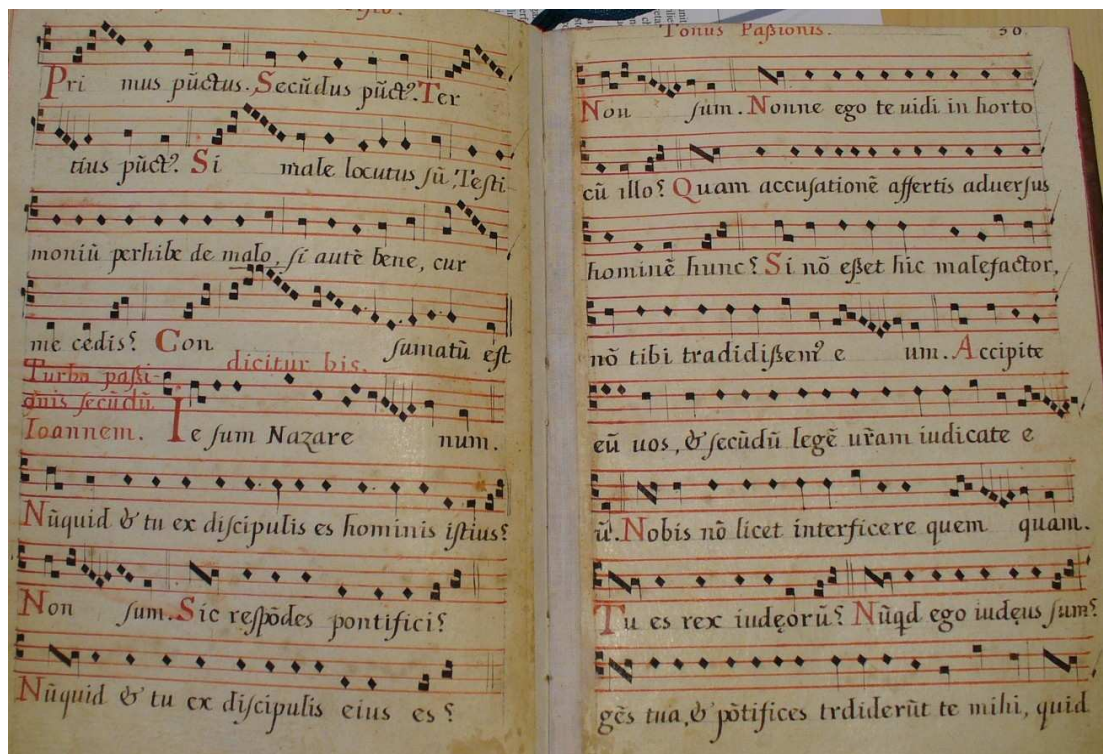 Pri mus pũctus. Secũdus pũct? Ter
tius pũct? Si male locutus sũ, Testi-
moniũ perhibe de malo, si autẽ bene, cur
me cedis? Con sumatũ est
dicitur bis.
Turba passi-
onis secũdũ
Ioannem. Ie sum Nazare num.
Nũquid & tu ex discipulis es hominis istius?
Non sum. Sic respõdes pontifici?
Nũquid & tu ex discipulis eius es?
Tonus Paßionis.
Non sum. Nonne ego te uidi in horto
cũ illo? Quam accusationẽ affertis aduersus
hominẽ hunc? Si nõ eßet hic malefactor,
nõ tibi tradidißem? e um. Accipite
eũ uos, & secũdũ legẽ ur̃am iudicate e
ũ. Nobis nõ licet interficere quem quam.
Tu es rex iudęorũ? Nũqd ego iudęus sum?
gẽs tua, & põtifices trdiderũt te mihi, quid